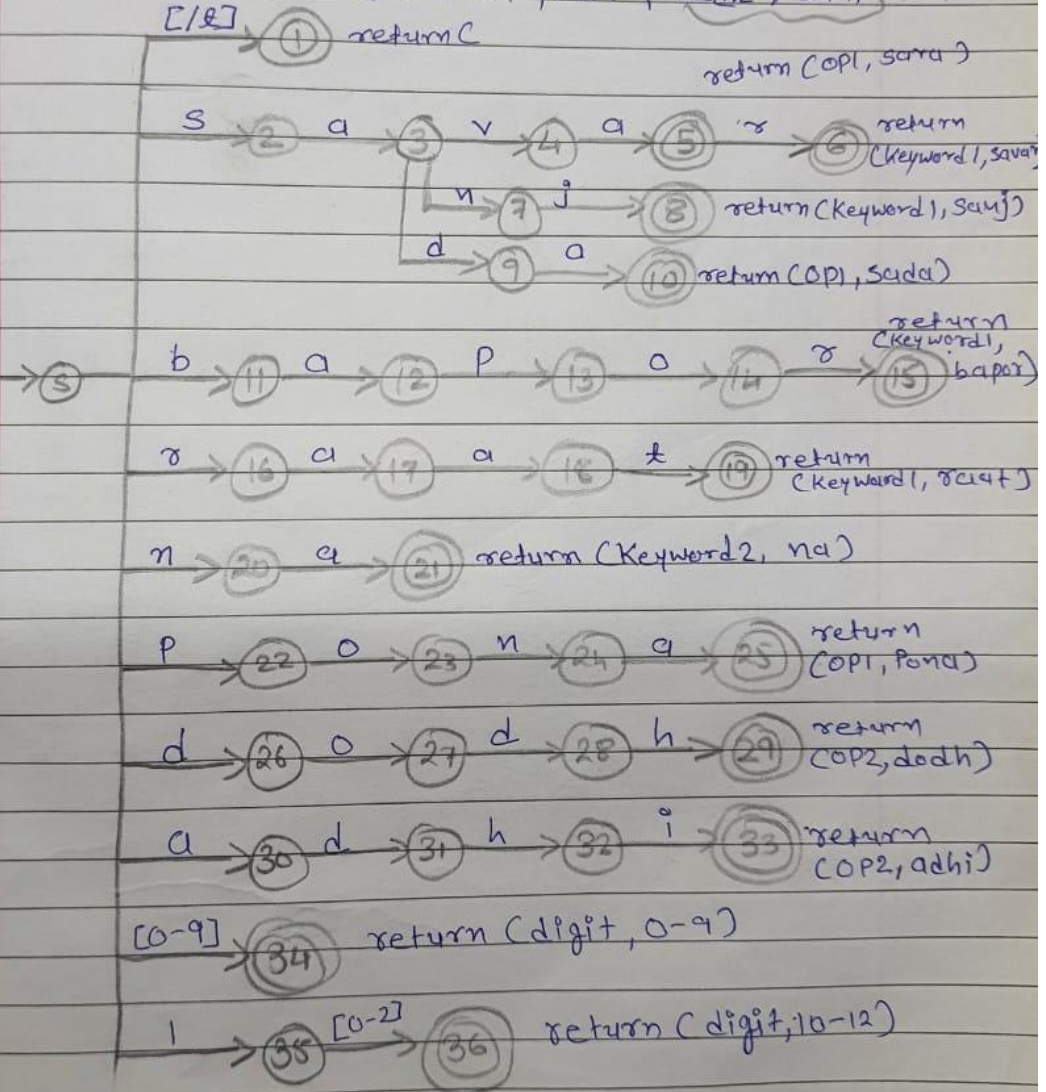 [/s] 1 return C
return (OP1, sava)
s 2 a 3 v 4 a 5 r 6 return
(Keyword1, savar)
n 7 j 8 return (Keyword1, sanj)
d 9 a 10 return (OP1, sada)
return
(Keyword1,
S b 11 a 12 p 13 o 14 r 15 bapor)
r 16 a 17 a 18 t 19 return
(Keyword1, raat)
n 20 a 21 return (Keyword2, na)
p 22 o 23 n 24 a 25 return
(OP1, Pona)
d 26 o 27 d 28 h 29 return
(OP2, dodh)
a 30 d 31 h 32 i 33 return
(OP2, adhi)
[0-9] 34 return (digit, 0-9)
1 35 [0-2] 36 return (digit, 10-12)